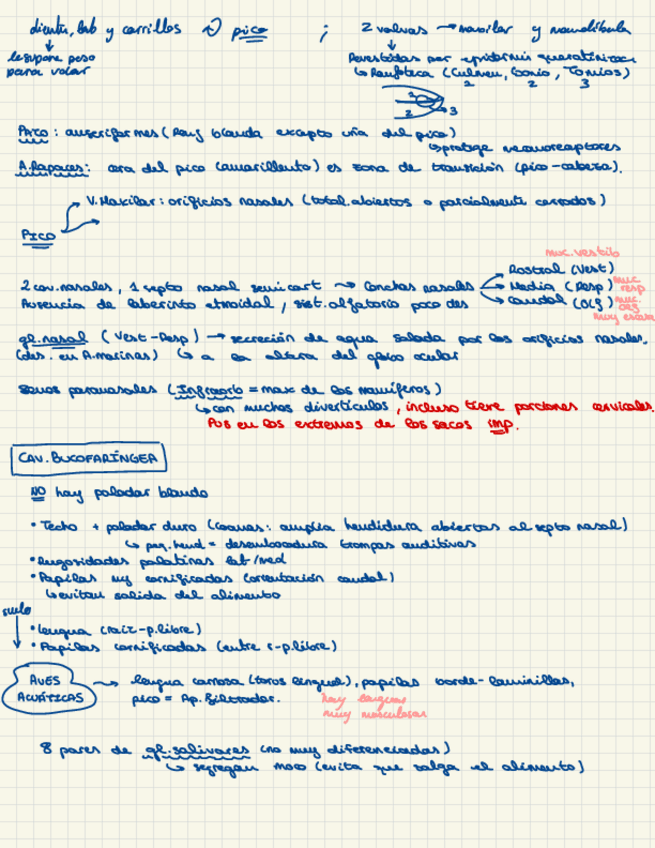 dientes, lab y carrillos → pico ; 2 valvas → maxilar y mandíbula
le supone peso para volar
Revestidas por epidermis queratiniza
↳ Ranfoteca (Culmen, Gonio, Tomios)
1 2 3
1
2 → 3
PATO: anseriformes (Ranf blanda excepto uña del pico)
↳ protege mecanoreceptores
A. Rapaces: cera del pico (amarillento) es zona de transición (pico-cabeza).
V. Maxilar: orificios nasales (total. abiertos o parcialmente cerrados)
PICO
muc. vestib
2 cav. nasales, 1 septo nasal semicart → Conchas nasales
Rostral (Vest)
Media (Resp) muc. resp
Caudal (Olf) muc. olf
muy escasa
Ausencia de laberinto etmoidal, sist. olfatorio poco des
gl. nasal (Vest-Resp) → secreción de agua salada por los orificios nasales.
(des. en A. marinas) ↳ a la altura del globo ocular
Senos paranasales (Infraorb = max de los mamíferos)
↳ con muchos divertículos, incluso tiene porciones cervicales.
Pus en los extremos de los sacos imp.
CAV. BUCOFARÍNGEA
NO hay paladar blando
• Techo + paladar duro (coanas: amplia hendidura abiertas al septo nasal)
↳ peq. hend = desembocadura trompas auditivas
• Rugosidades palatinas lat/med
• Papilas muy cornificadas (orientación caudal)
↳ evitan salida del alimento
suelo
• Lengua (raíz-p. libre)
• Papilas cornificadas (entre r-p. libre)
AVES ACUÁTICAS → lengua carnosa (torus lingual), papilas borde-laminillas,
pico = Ap. filtrador.
hay lenguas
muy musculosas
8 pares de gl. salivares (no muy diferenciadas)
↳ segregan moco (evita que salga el alimento)